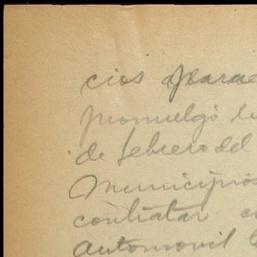 cios para
promulgó
de febrero del
Municipios
contratar
automovil